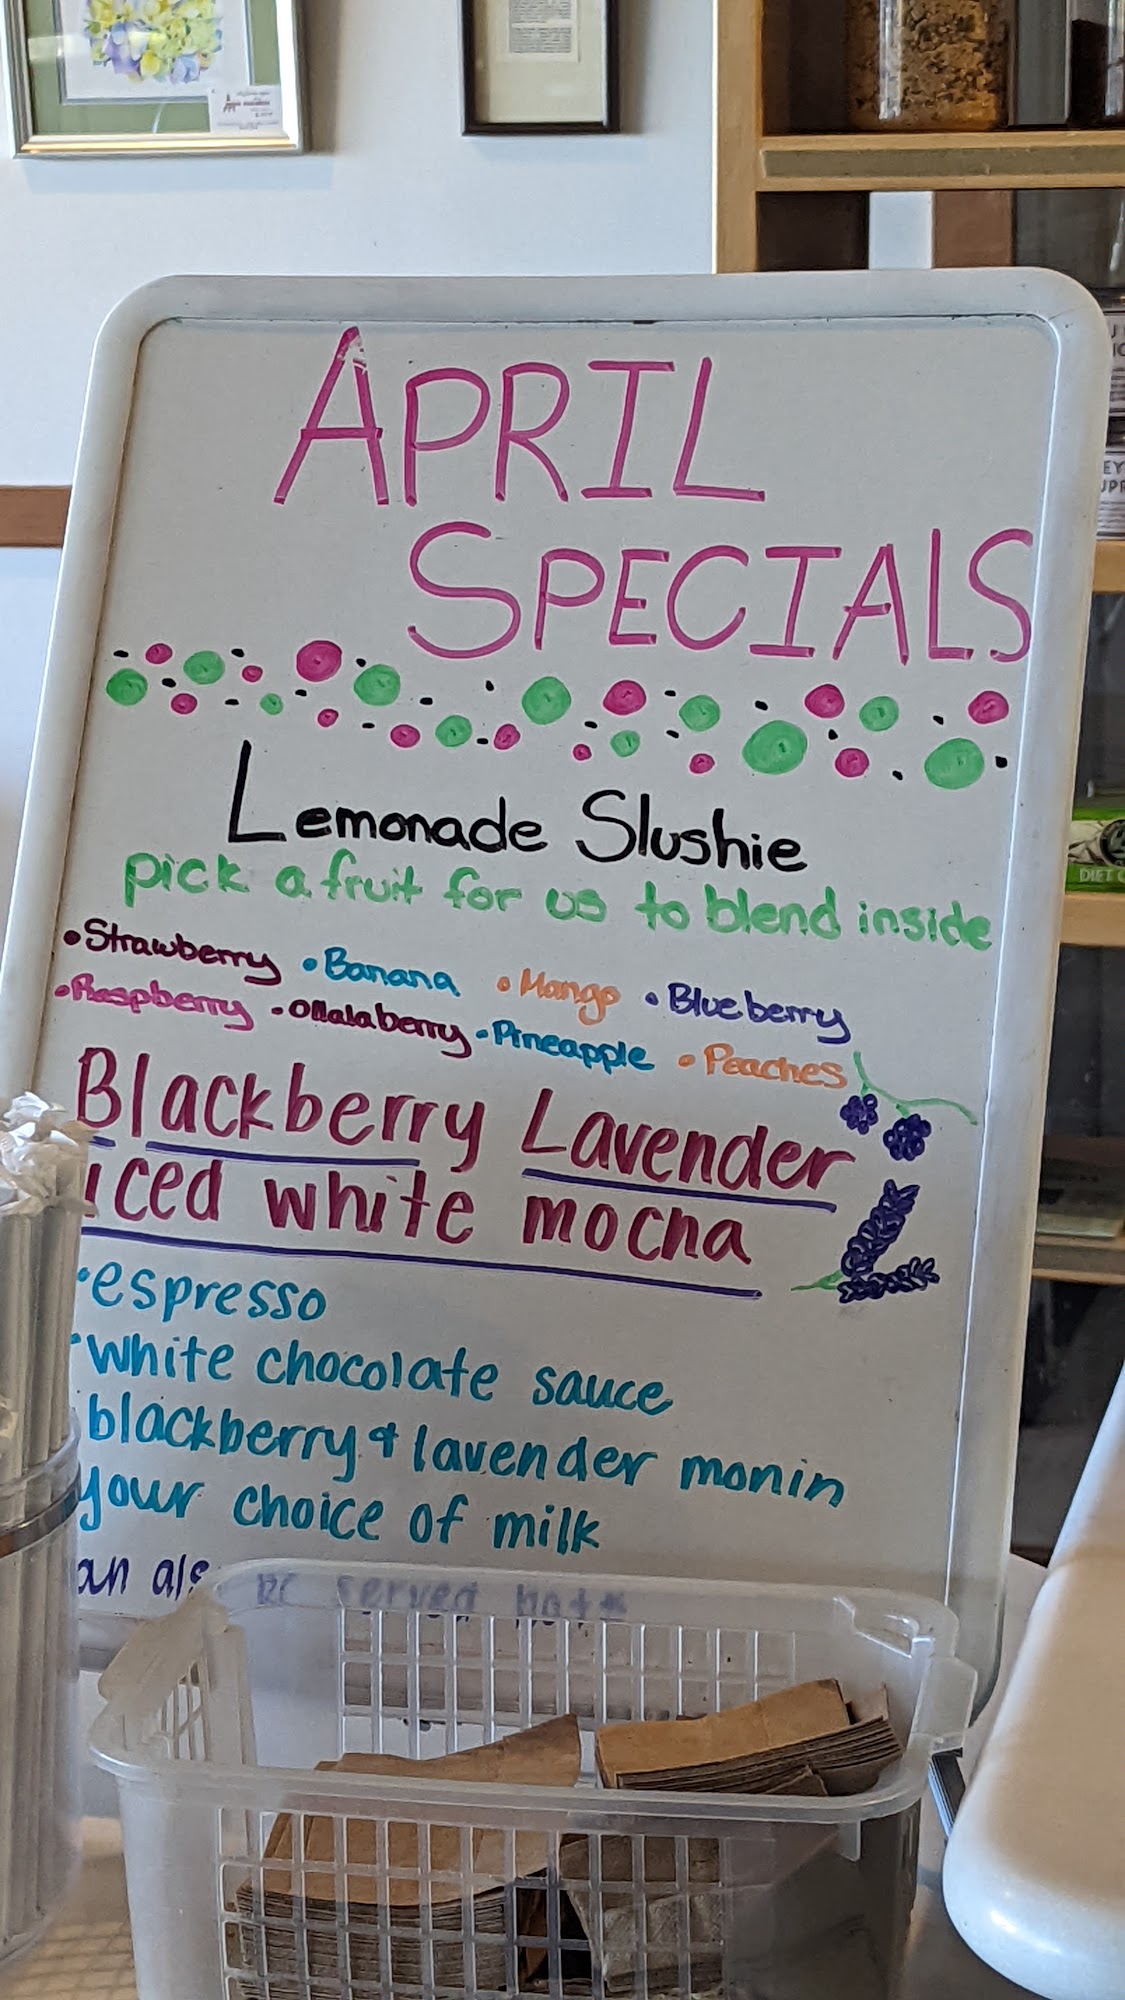 APRIL
SPECIALS
Lemonade Slushie
pick a fruit for us to blend inside
•Strawberry •Banana •Mango •Blueberry
•Raspberry •Ollalaberry •Pineapple •Peaches
Blackberry Lavender
iced white mocha
•espresso
•white chocolate sauce
blackberry & lavender monin
your choice of milk
an als be served hot*
DIET